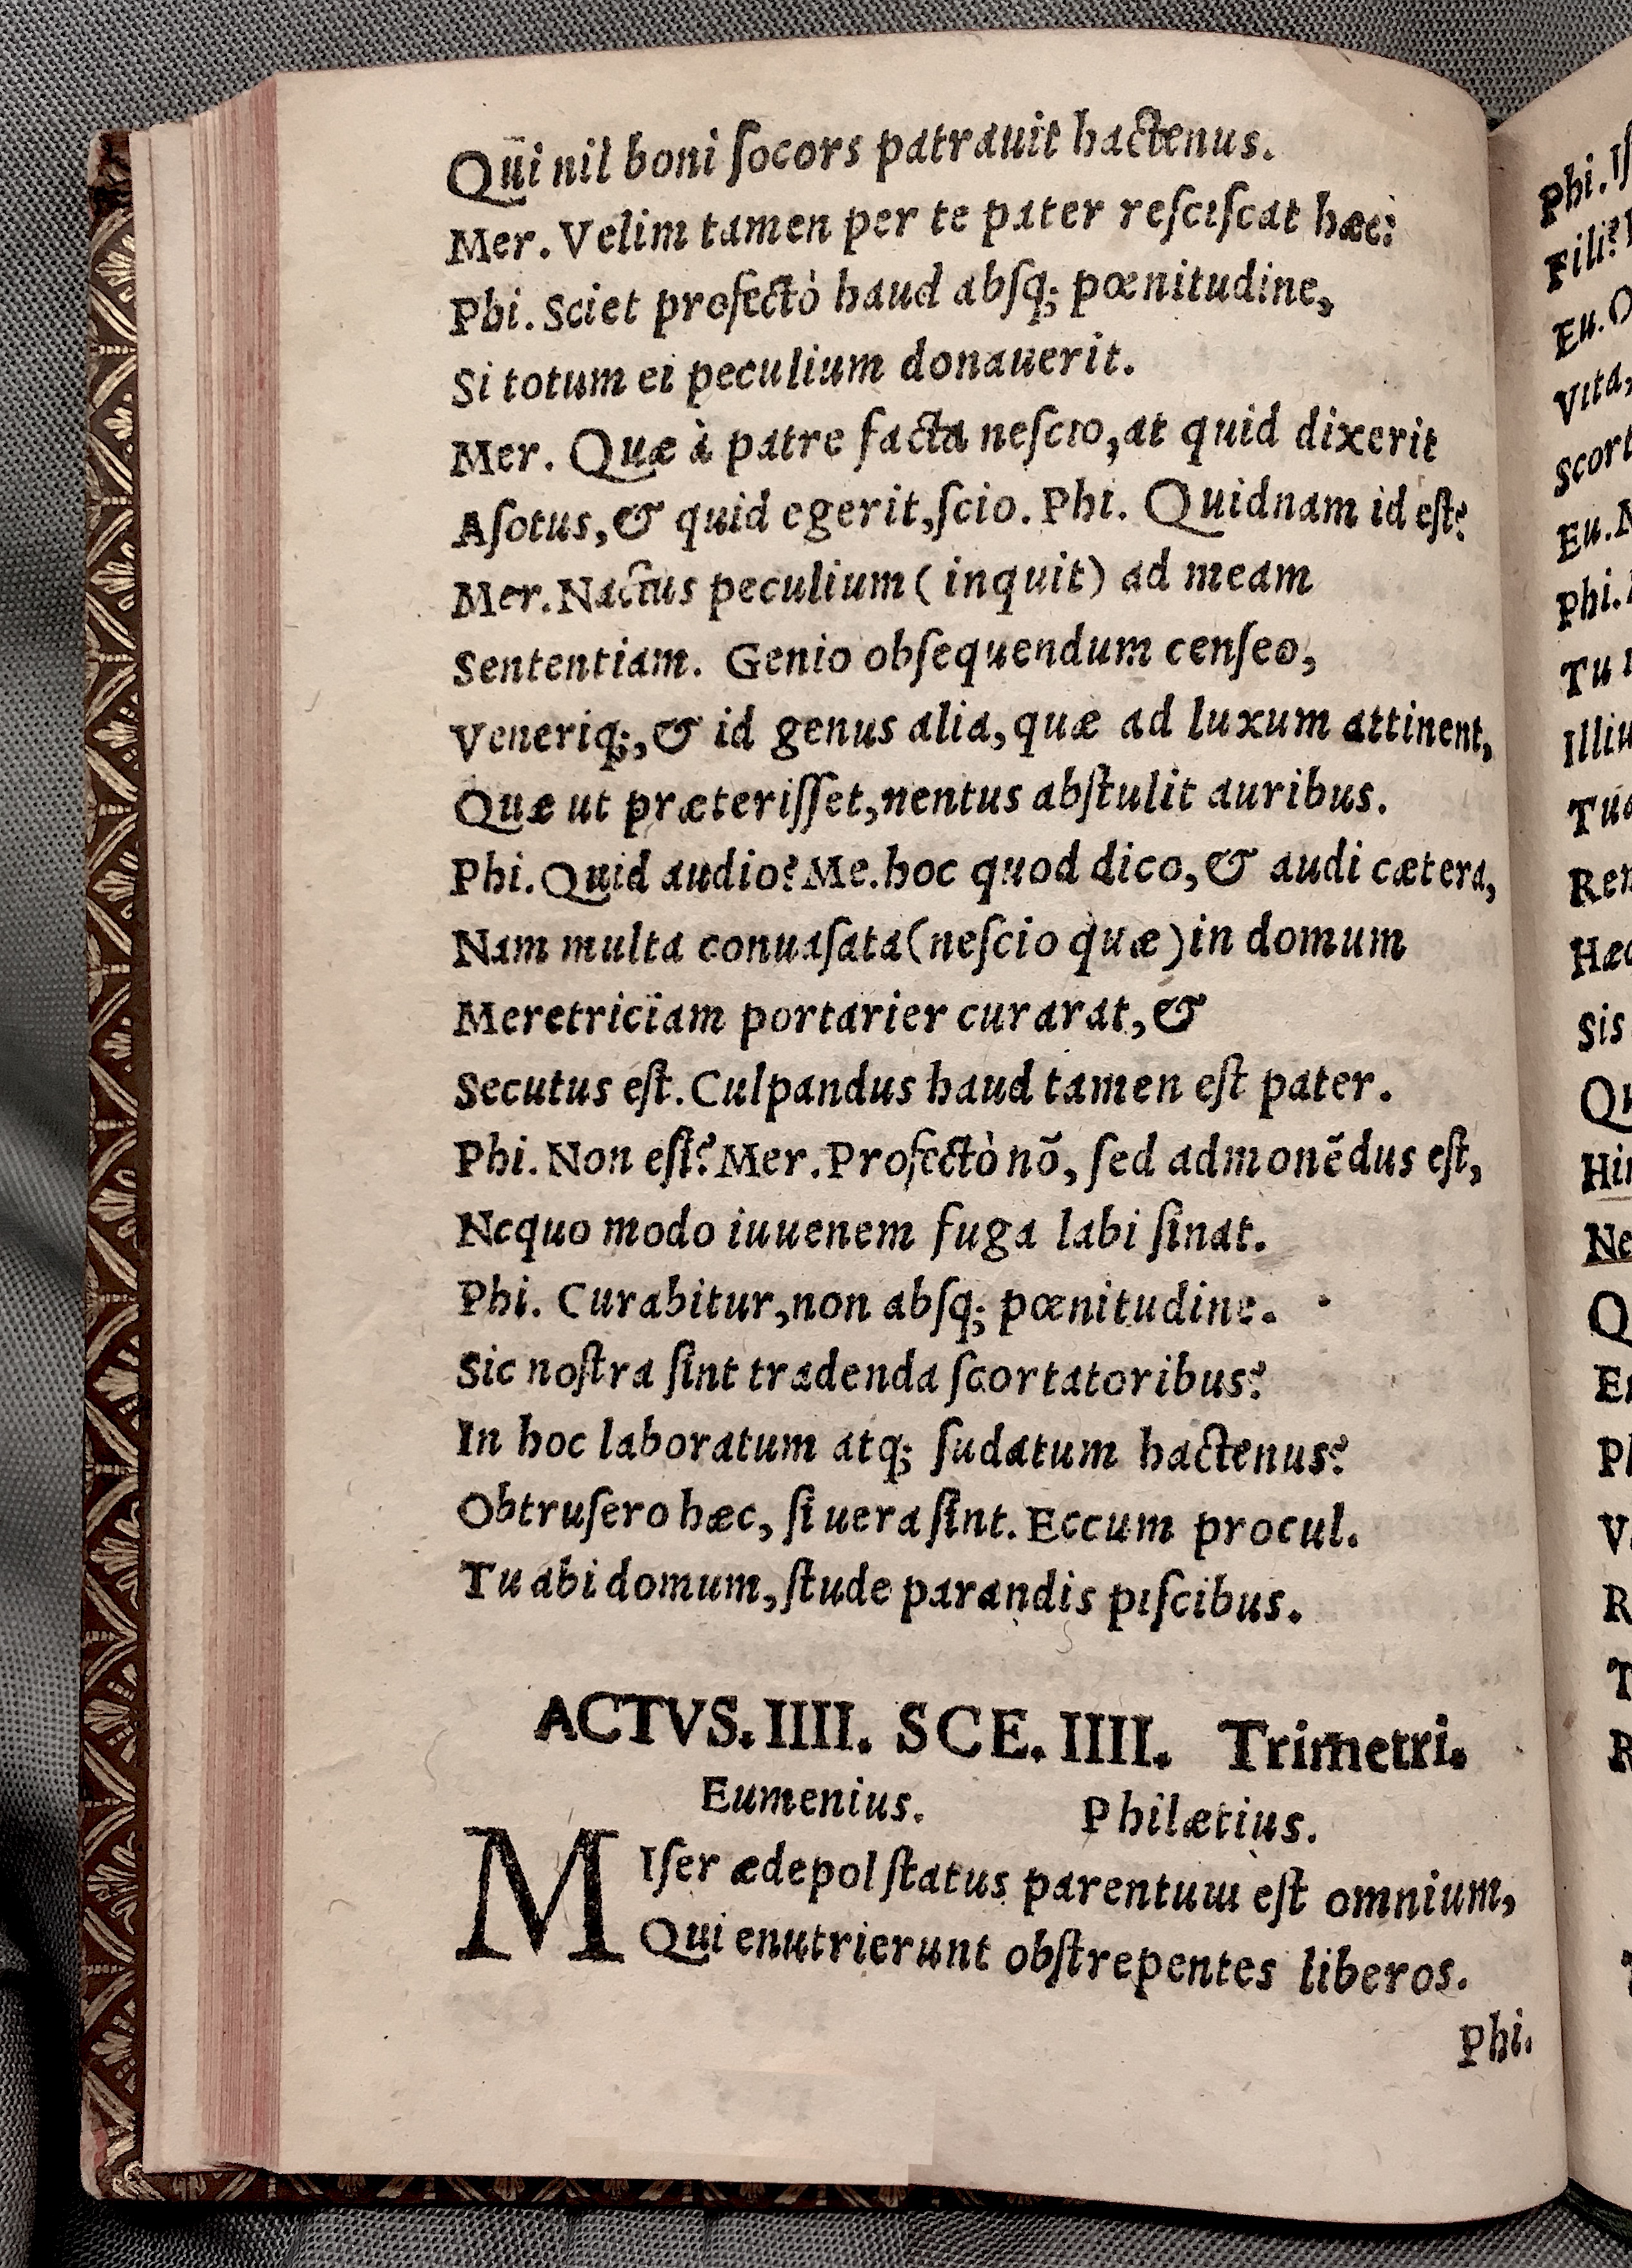 Qui nil boni ſocors patrauit hactenus.
Mer. Velim tamen per te pater reſciſcat hæc:
Phi. Sciet profectò haud abſq; pœnitudine,
Si totum ei peculium donauerit.
Mer. Quæ à patre facta neſcio, at quid dixerit
Aſotus, & quid egerit, ſcio. Phi. Quidnam id eſt?
Mer. Nactus peculium ( inquit) ad meam
Sententiam. Genio obſequendum cenſeo,
Veneriq;, & id genus alia, quæ ad luxum attinent,
Quæ ut præteriſſet, nentus abſtulit auribus.
Phi. Quid audio? Me. hoc quod dico, & audi cætera,
Nam multa conuaſata (neſcio quæ) in domum
Meretriciam portarier curarat, &
Secutus eſt. Culpandus haud tamen eſt pater.
Phi. Non eſt? Mer. Profectò nõ, ſed admonẽdus eſt,
Nequo modo iuuenem fuga labi ſinat.
Phi. Curabitur, non abſq; pœnitudine.
Sic noſtra ſint tradenda ſcortatoribus?
In hoc laboratum atq; ſudatum hactenus?
Obtruſero hæc, ſi uera ſint. Eccum procul.
Tu abi domum, ſtude parandis piſcibus.
ACTVS. IIII. SCE. IIII. Trimetri.
Eumenius. Philætius.
MIſer ædepol ſtatus parentum eſt omnium,
Qui enutrierunt obſtrepentes liberos.
Phi.
Phi. Iſ
Fili?
Eu. O
Vita,
Scort
Eu. N
Phi.
Tu
Illiu
Tua
Ren
Hæc
Sis
Qu
Hin
Ne